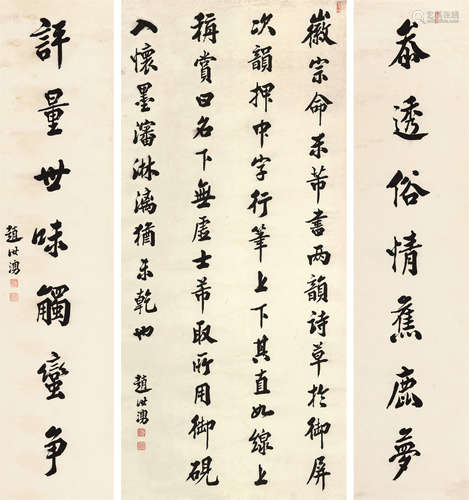 叅透俗情蕉鹿夢
徽宗命米芾書兩韻詩草於御屏
次韻押中字行筆上下其直如線上
稱賞曰名下無虛士芾取所用御硯
入懷墨瀋淋漓猶未乾也
趙
評量世味觸蠻争
趙